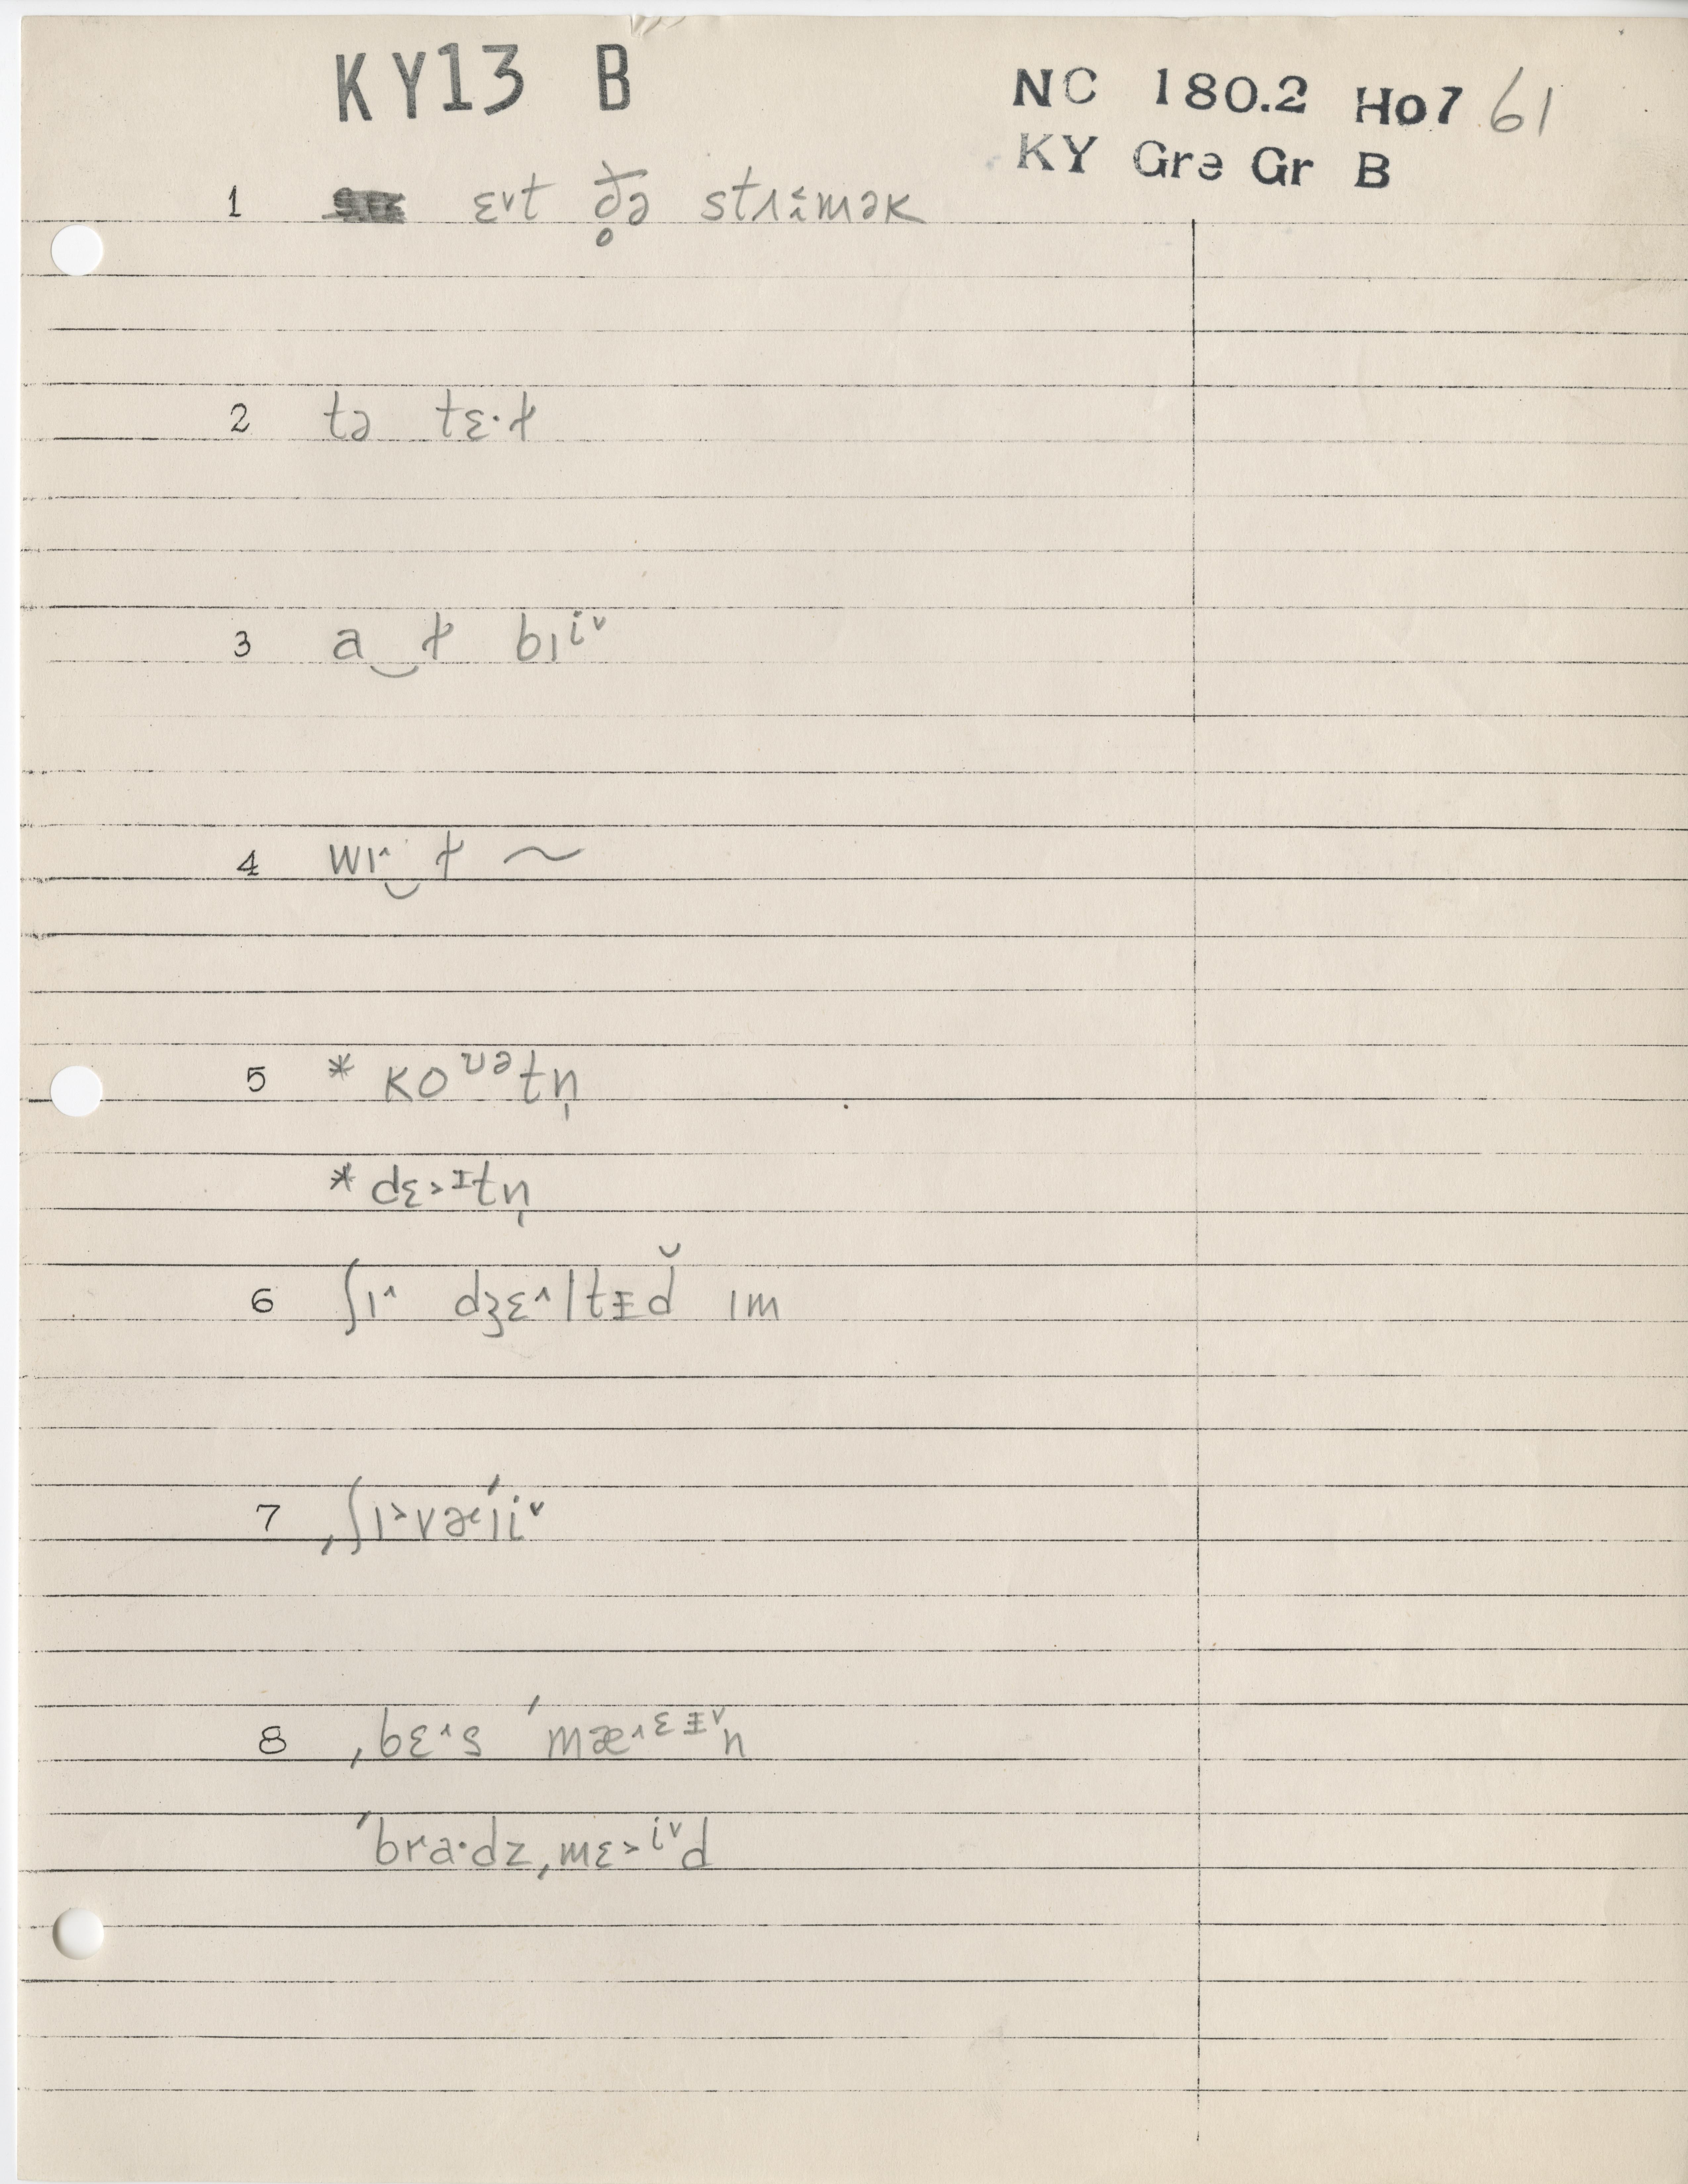 KY13 B
NC 180.2 Ho7 61
KY Grə Gr B
1 ɛ˅t ð̥ə strɨmək
2 tə tɛ·ɫ
3 a‿ɫ bɪⁱ˅
4 wɪ˄‿ɫ ~
5 * koᶷᵊtn̩
* dɛ˃ᶦtn̩
6 ʃɪ˄ dʒɛ˄ltɪ̵d̆ ɪm
7 ˌʃɪ˃væˈɪi˅
8 ˌbɛ˄s ˈmæ˄ᵋᵻ˅n
ˈbra·dzˌmɛ˃ⁱ˅d